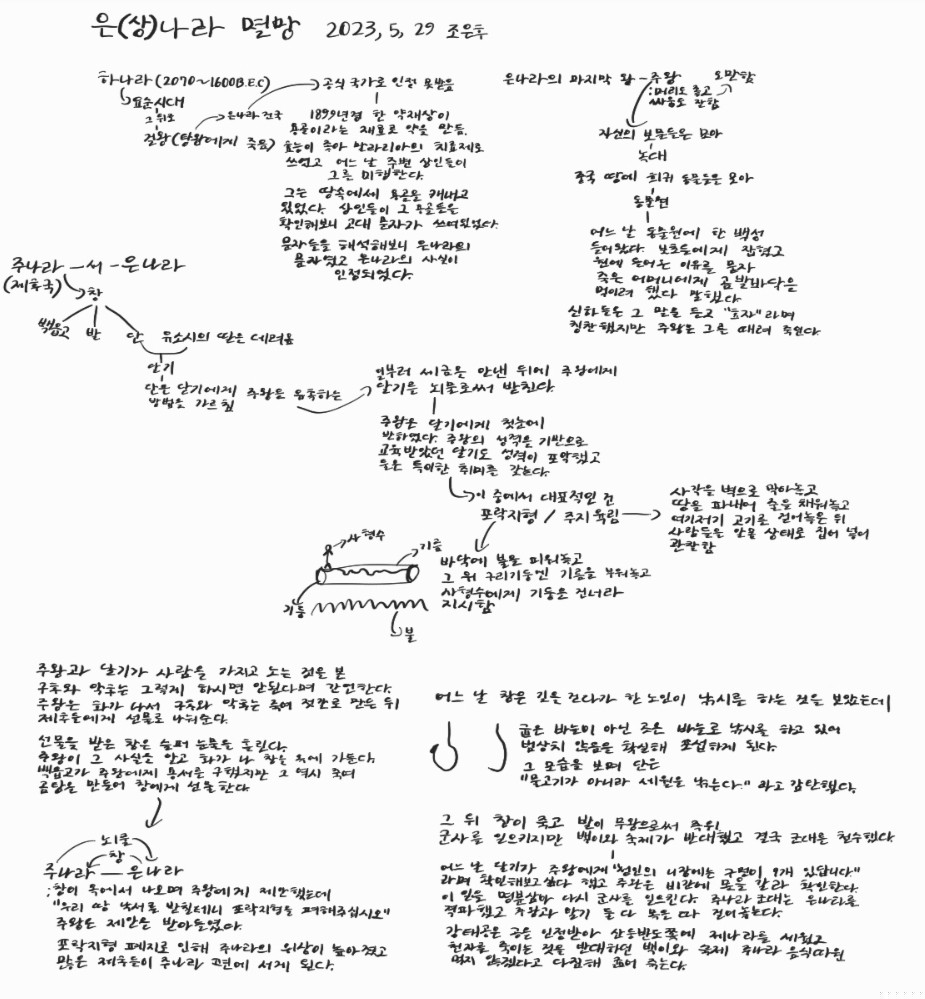 은(상)나라 멸망 2023, 5, 29 조은후
하나라 (2070~1600B.E.C)
요순시대
그 뒤로
걸왕(탕왕에게 죽음)
은나라 건국
공식 국가로 인정 못받음
1899년경 한 약재상이
용골이라는 재료로 약을 만듦.
효능이 좋아 말라리아의 치료제로
쓰였고 어느 날 주변 상인들이
그를 미행한다.
그는 땅속에서 용골을 캐내고
있었다. 상인들이 그 용골들을
확인해보니 고대 문자가 쓰여있었다.
문자들을 해석해보니 은나라의
문자였고 은나라의 사실이
인정되었다.
은나라의 마지막 왕 - 주왕
:머리도 좋고
싸움도 잘함
오만함
자신의 보물들을 모아
녹대
중국 땅에 희귀 동물들을 모아
동물원
어느 날 동물원에 한 백성
들어왔다. 보초들에게 잡혔고
원에 들어온 이유를 묻자
죽은 어머니에게 곰발바닥을
먹이려 했다 말했다.
신하들은 그 말을 듣고 "효자"라며
칭찬했지만 주왕은 그를 때려 죽인다
주나라 - 서 - 은나라
(제후국)
창
백읍고 발 단
유소시의 딸을 데려옴
달기
단은 달기에게
방법을 가르침
주왕을 유혹하는
일부러 세금을 안낸 뒤에 주왕에게
달기를 뇌물로써 받친다.
주왕은 달기에게 첫눈에
반하였다. 주왕의 성격을 기반으로
교육받았던 달기도 성격이 포악했고
둘은 특이한 취미를 갖는다.
이 중에서 대표적인 건
포락지형 / 주지육림
사각을 벽으로 막아놓고
땅을 파내어 술을 채워놓고
여기저기 고기를 걸어놓은 뒤
사람들을 알몸 상태로 집어 넣어
관찰함
사형수
기름
기둥
불
바닥에 불을 피워놓고
그 위 구리기둥엔 기름을 부워놓고
사형수에게 기둥을 건너라
지시함
주왕과 달기가 사람을 가지고 노는 것을 본
구후와 악후는 그렇게 하시면 안된다며 간언한다.
주왕은 화가 나서 구후와 악후를 죽여 젓갈로 만든 뒤
제후들에게 선물로 나눠준다.
선물을 받은 창은 슬퍼 눈물을 흘린다.
주왕이 그 사실을 알고 화가 나 창을 옥에 가둔다.
백읍고가 주왕에게 용서를 구했지만 그 역시 죽여
곰탕을 만들어 창에게 선물한다.
뇌물
창
주나라 - 은나라
;창이 옥에서 나오며 주왕에게 제안했는데
"우리 땅 낙서를 받칠테니 포락지형을 폐해주십시오"
주왕은 제안을 받아들였다.
포락지형 폐지로 인해 주나라의 위상이 높아졌고
많은 제후들이 주나라 편에 서게 된다.
어느 날 창은 길을 걷다가 한 노인이 낚시를 하는 것을 보았는데
굽은 바늘이 아닌 곧은 바늘로 낚시를 하고 있어
범상치 않음을 확실해 포섭하게 된다.
그 모습을 보며 단은
"물고기가 아니라 세월을 낚는다." 라고 감탄했다.
그 뒤 창이 죽고 발이 무왕으로써 즉위
군사를 일으키지만 백이와 숙제가 반대했고 결국 군대를 철수했다.
어느 날 달기가 주왕에게 "성인의 심장에는 구멍이 9개 있답니다"
라며 확인해보고싶다 했고 주왕은 비간에 몸을 갈라 확인한다.
이 일을 명분삼아 다시 군사를 일으킨다. 주나라 군대는 은나라를
격파했고 주왕과 달기 둘 다 목을 따 걸어놓는다.
강태공은 공을 인정받아 산둥반도쪽에 제나라를 세웠고
천자를 죽이는 것을 반대하던 백이와 숙제 주나라 음식따윈
먹지 않겠다고 다짐해 굶어 죽는다.